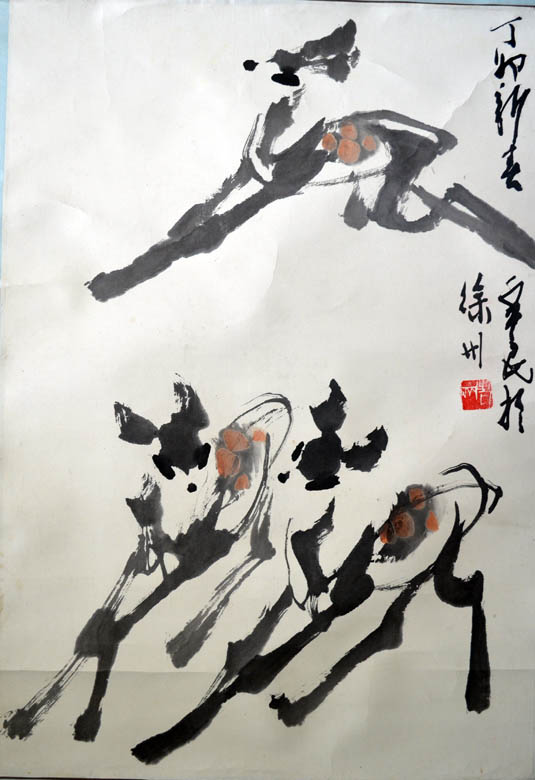 丁卯新春
民於
徐州